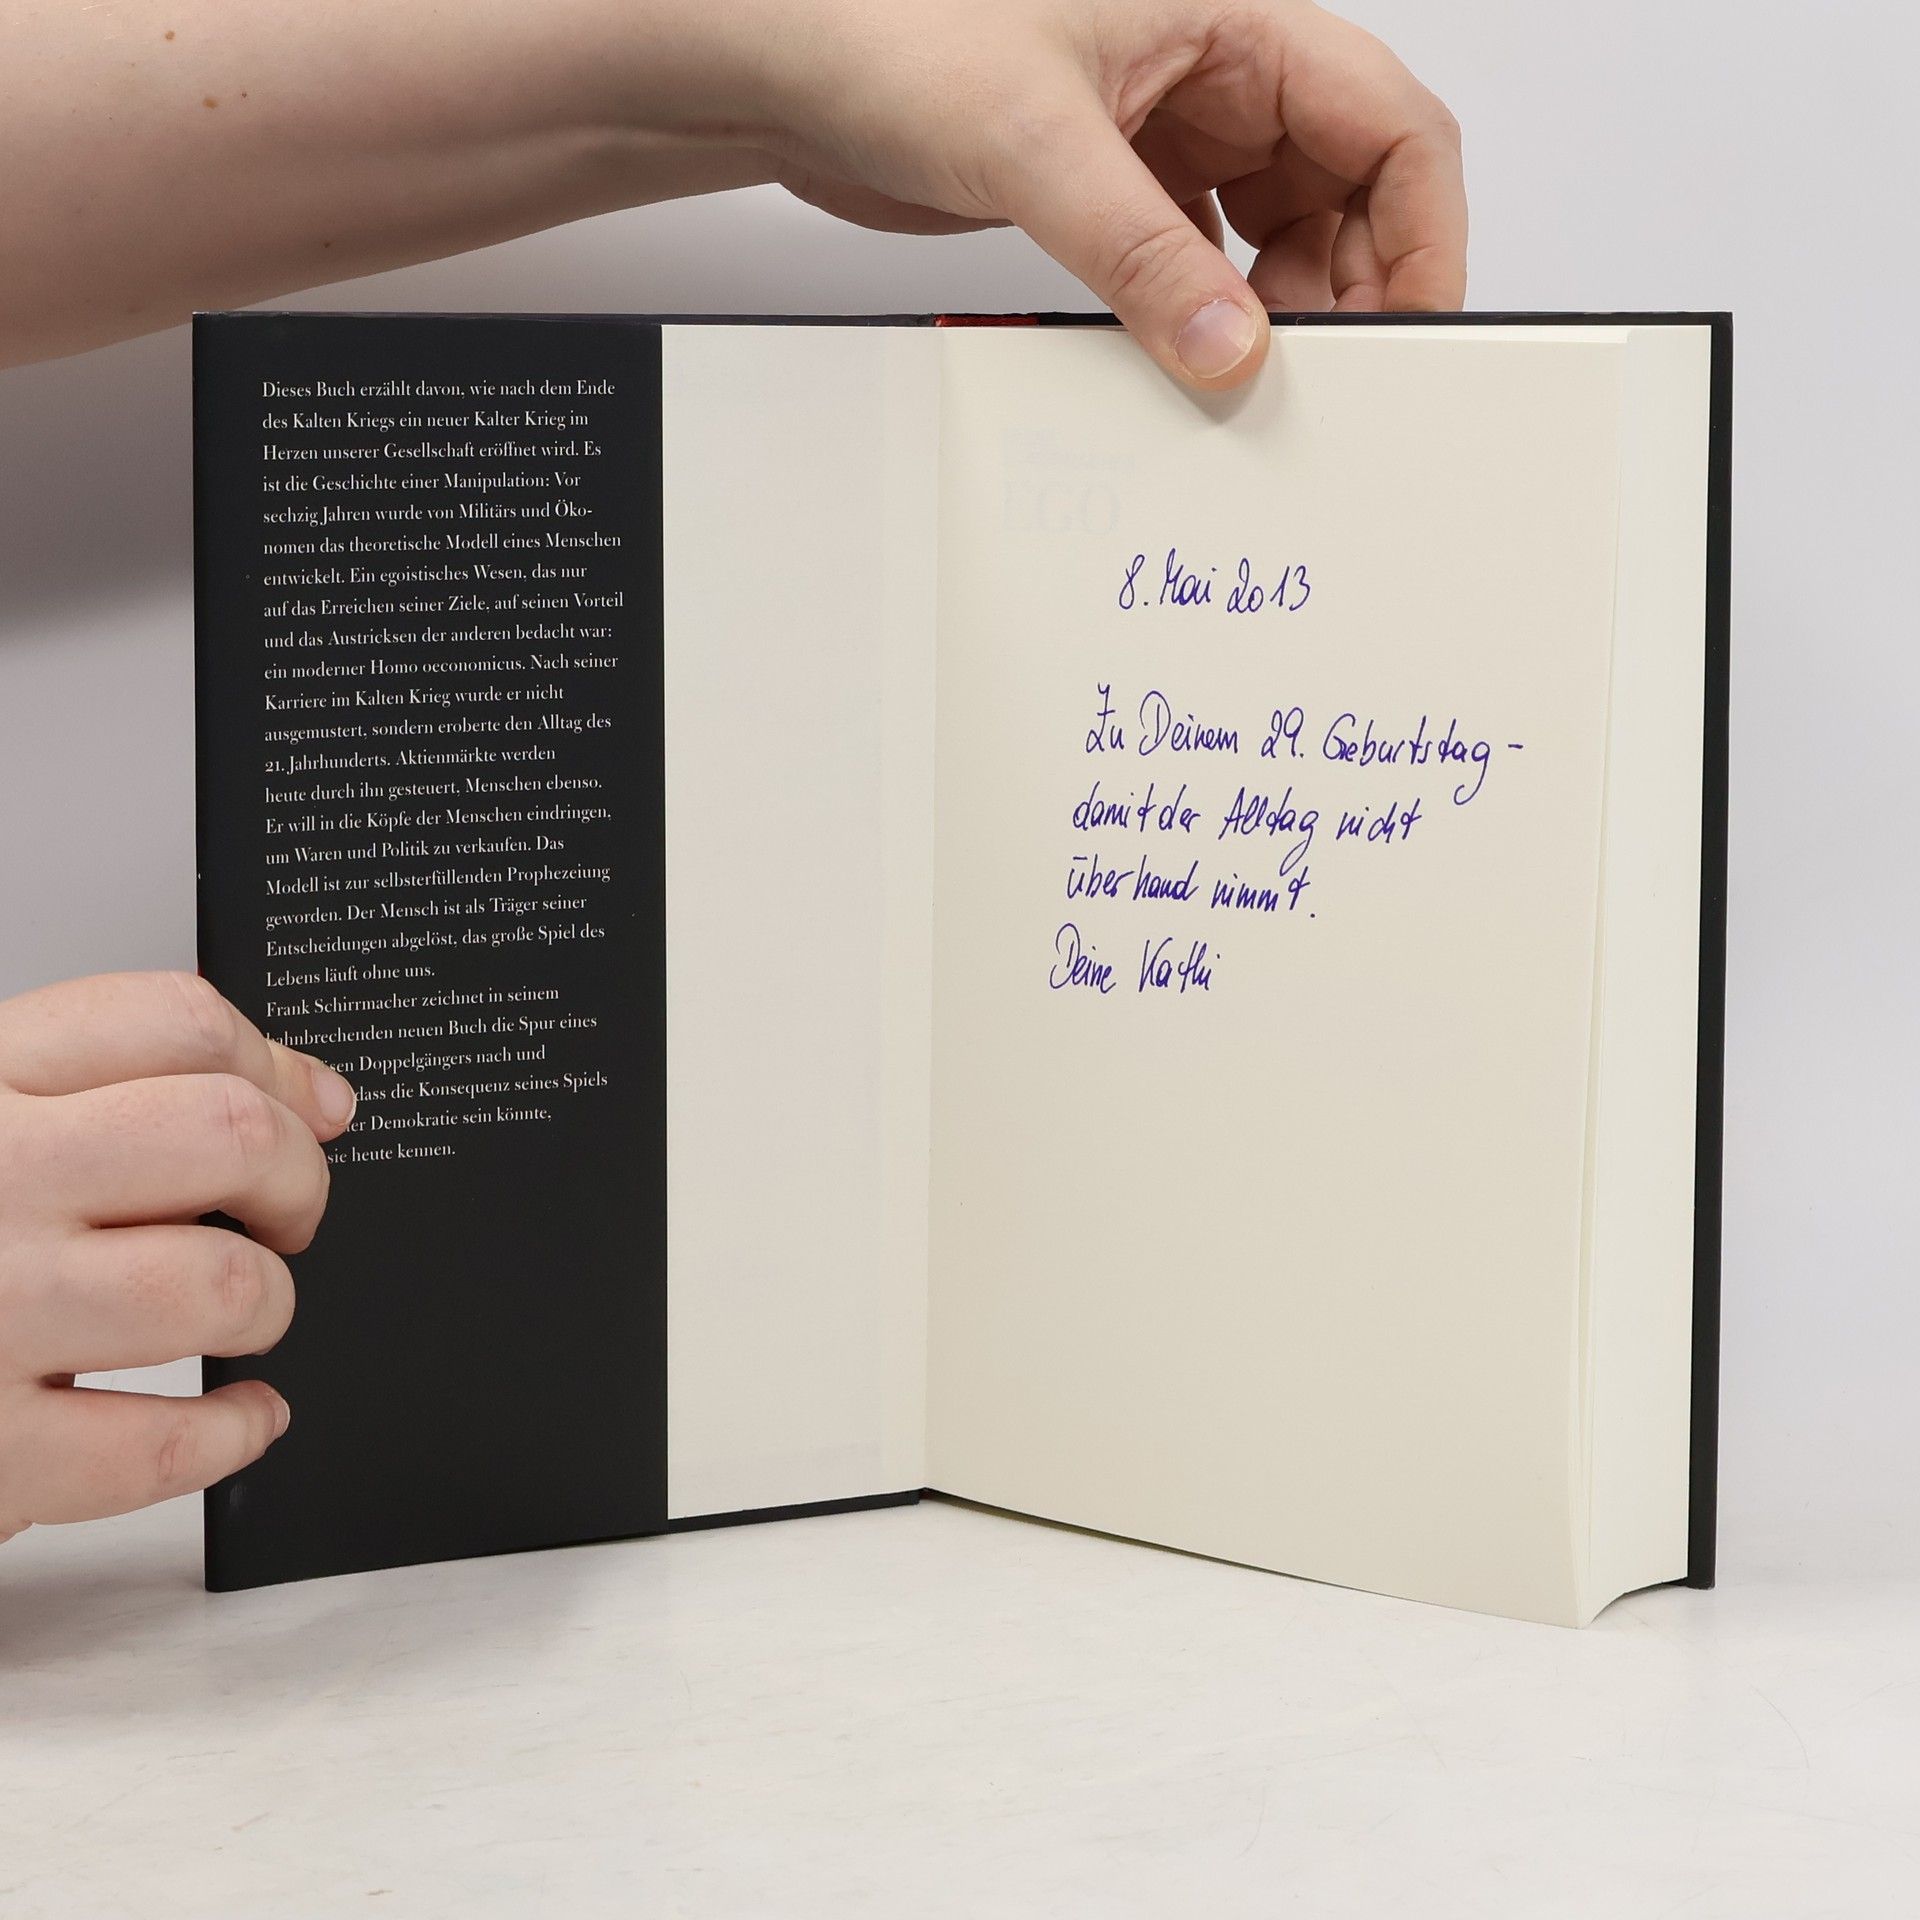 Dieses Buch erzählt davon, wie nach dem Ende
des Kalten Kriegs ein neuer Kalter Krieg im
Herzen unserer Gesellschaft eröffnet wird. Es
ist die Geschichte einer Manipulation: Vor
sechzig Jahren wurde von Militärs und Öko-
nomen das theoretische Modell eines Menschen
entwickelt. Ein egoistisches Wesen, das nur
auf das Erreichen seiner Ziele, auf seinen Vorteil
und das Austricksen der anderen bedacht war:
ein moderner Homo oeconomicus. Nach seiner
Karriere im Kalten Krieg wurde er nicht
ausgemustert, sondern eroberte den Alltag des
21. Jahrhunderts. Aktienmärkte werden
heute durch ihn gesteuert, Menschen ebenso.
Er will in die Köpfe der Menschen eindringen,
um Waren und Politik zu verkaufen. Das
Modell ist zur selbsterfüllenden Prophezeiung
geworden. Der Mensch ist als Träger seiner
Entscheidungen abgelöst, das große Spiel des
Lebens läuft ohne uns.
Frank Schirrmacher zeichnet in seinem
bahnbrechenden neuen Buch die Spur eines
Doppelgängers nach und
dass die Konsequenz seines Spiels
der Demokratie sein könnte,
sie heute kennen.
8. Mai 2013
Zu Deinem 29. Geburtstag -
damit der Alltag nicht
überhand nimmt.
Deine Kathi